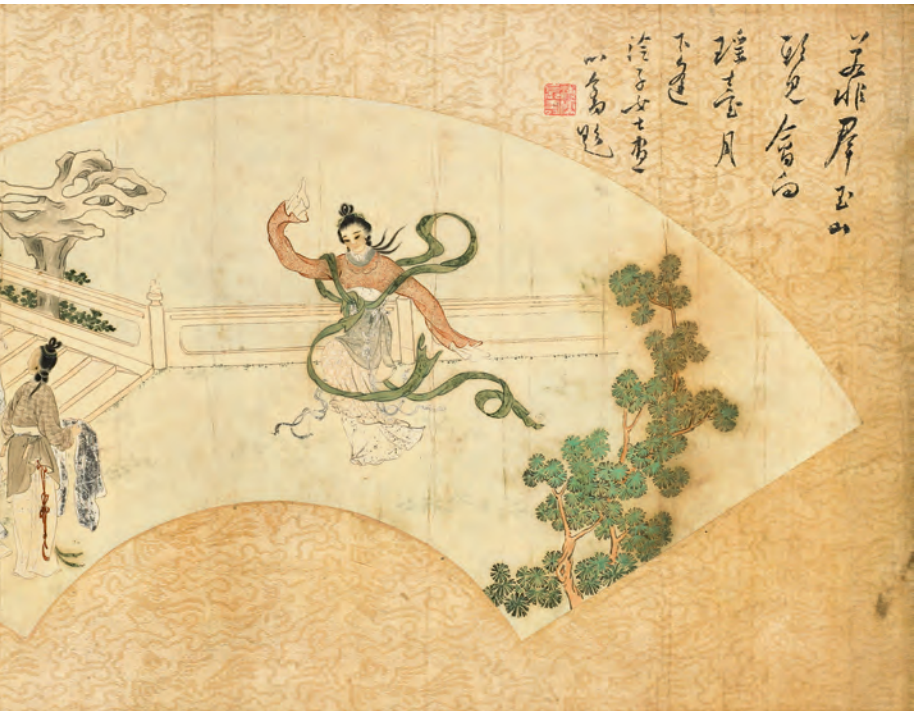 若非羣玉山
頭見會向
瑤臺月
下逢
子女士畫
題